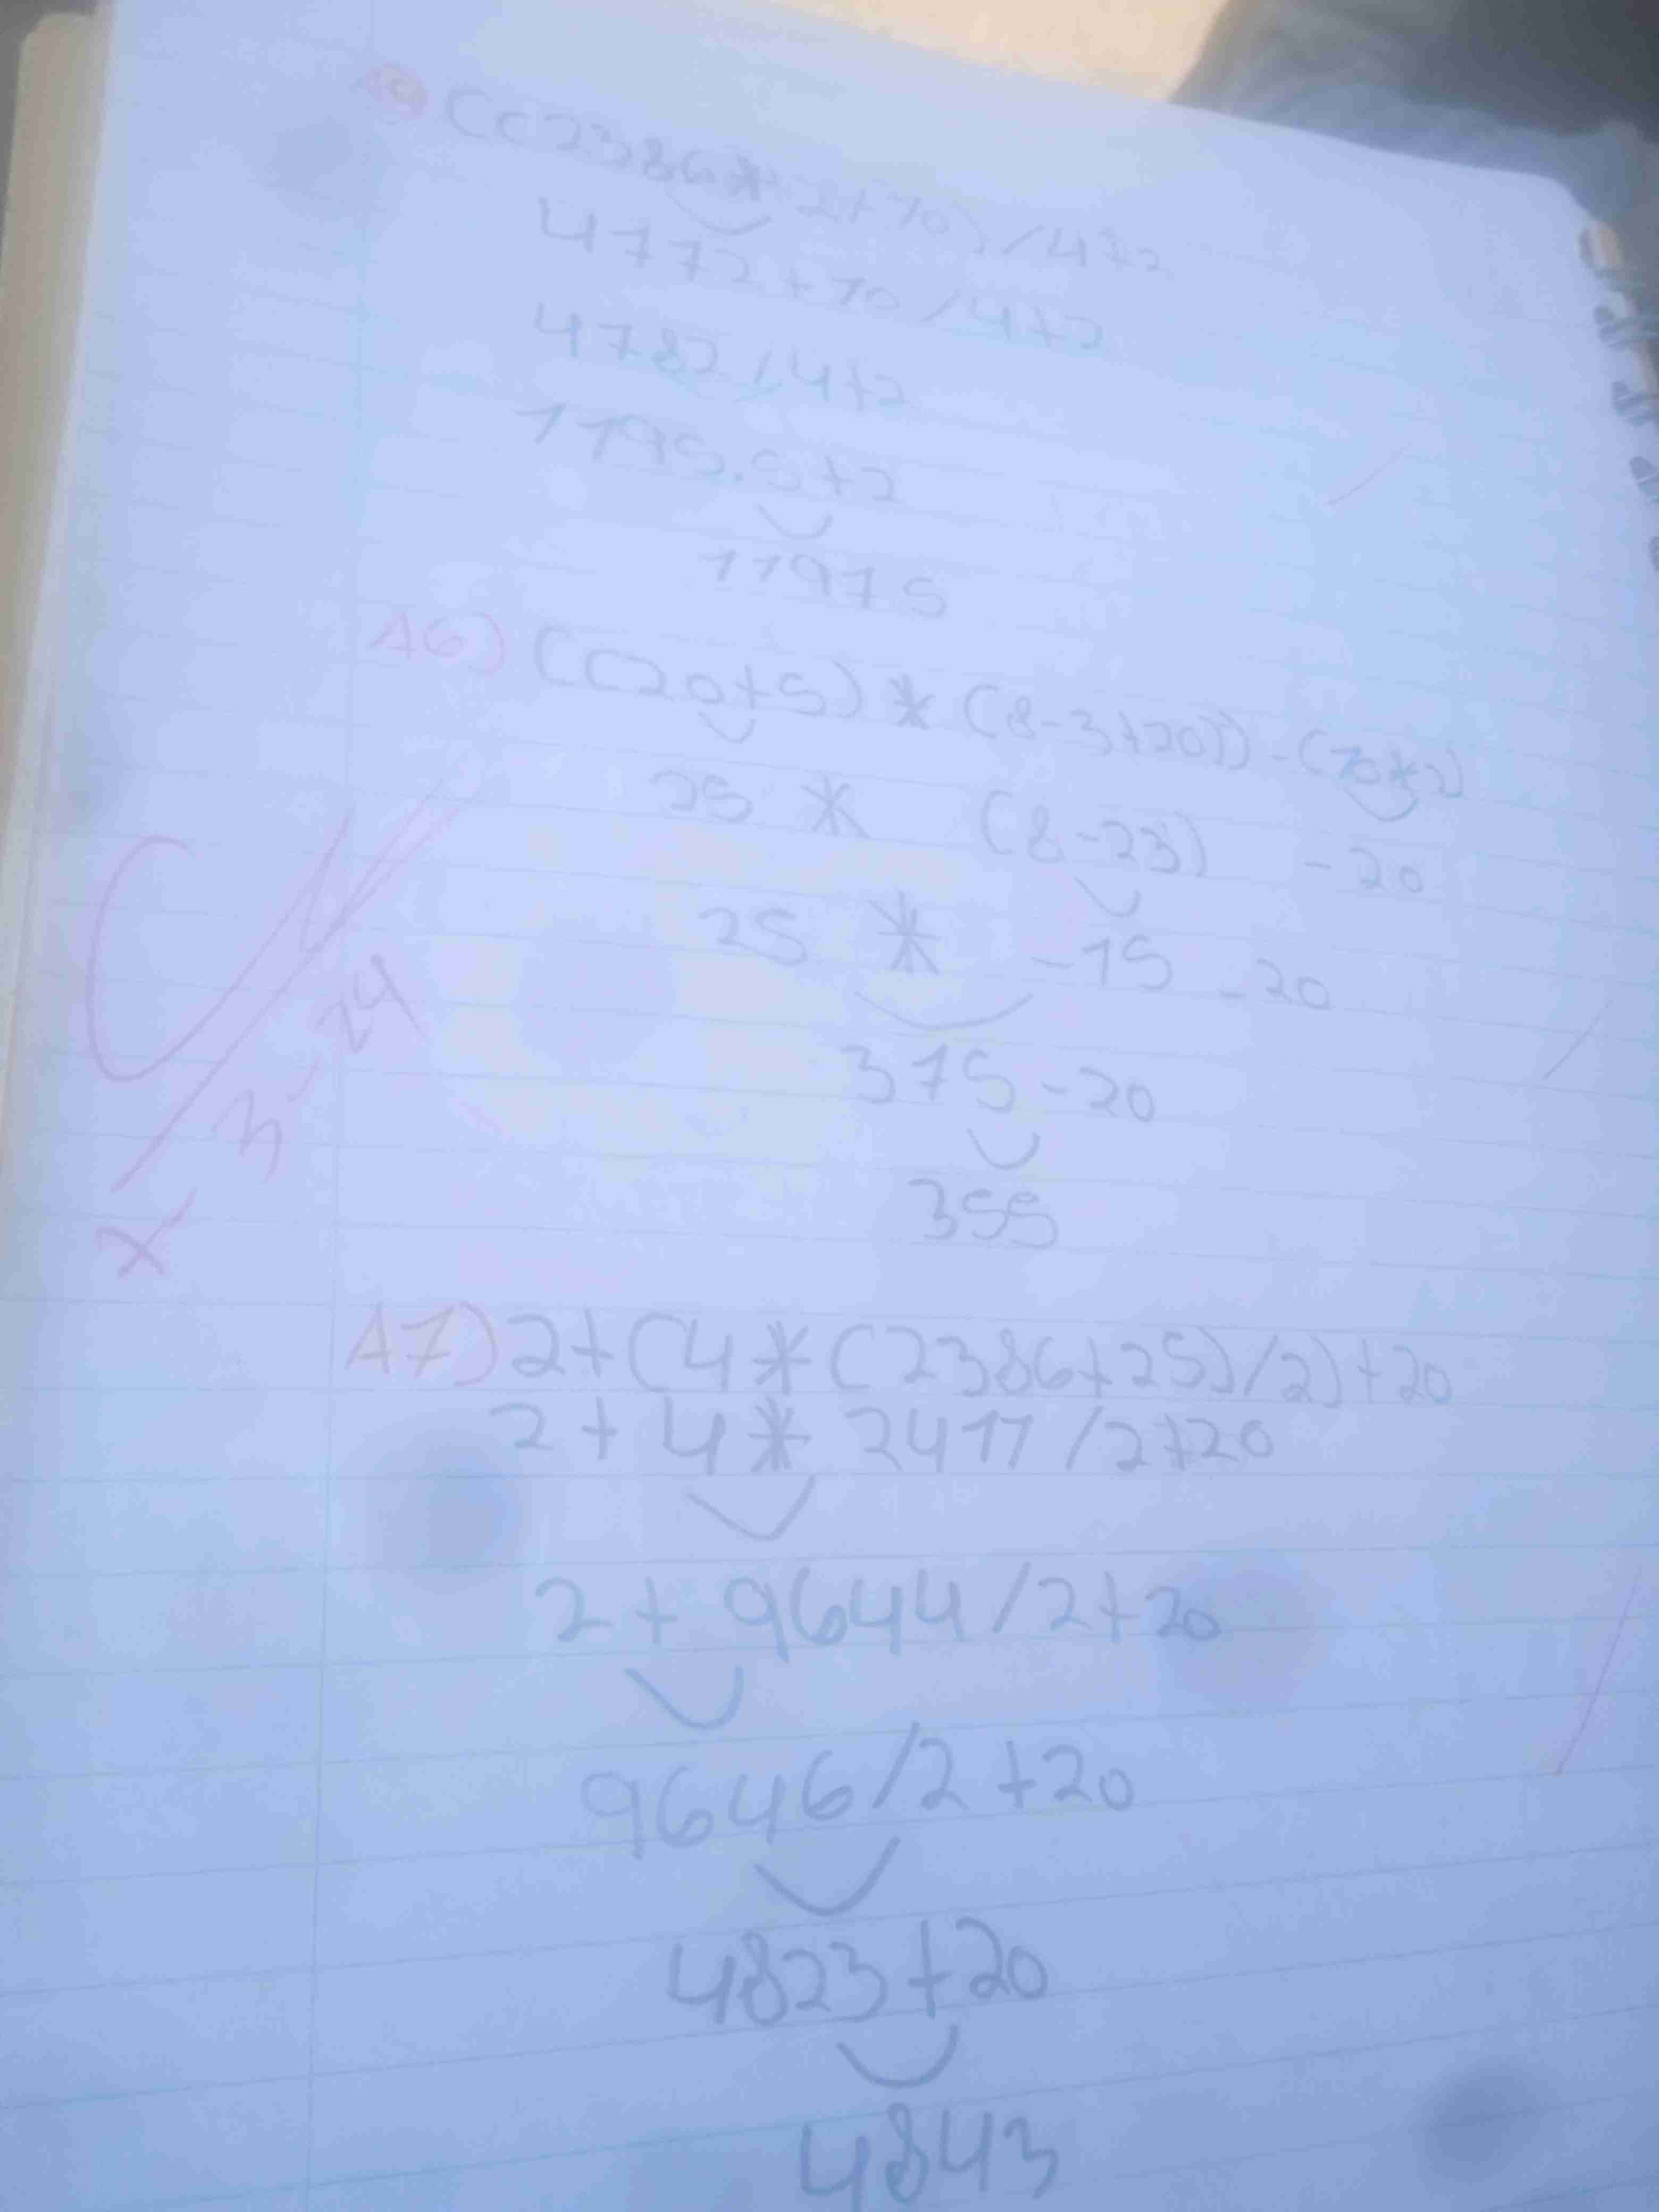 ((2386*2+10)/4+2
4772+10/4+2
4782/4+2
1195.5+2
1197 5
A6) ((20+5)*(8-3+20))-(10*2)
25 * (8-23) -20
25 * -15 -20
375-20
355
3-24
A7) 2+(4*(2386+25)/2)+20
2+4* 2411/2+20
2+9644/2+20
9646/2+20
4823+20
4843